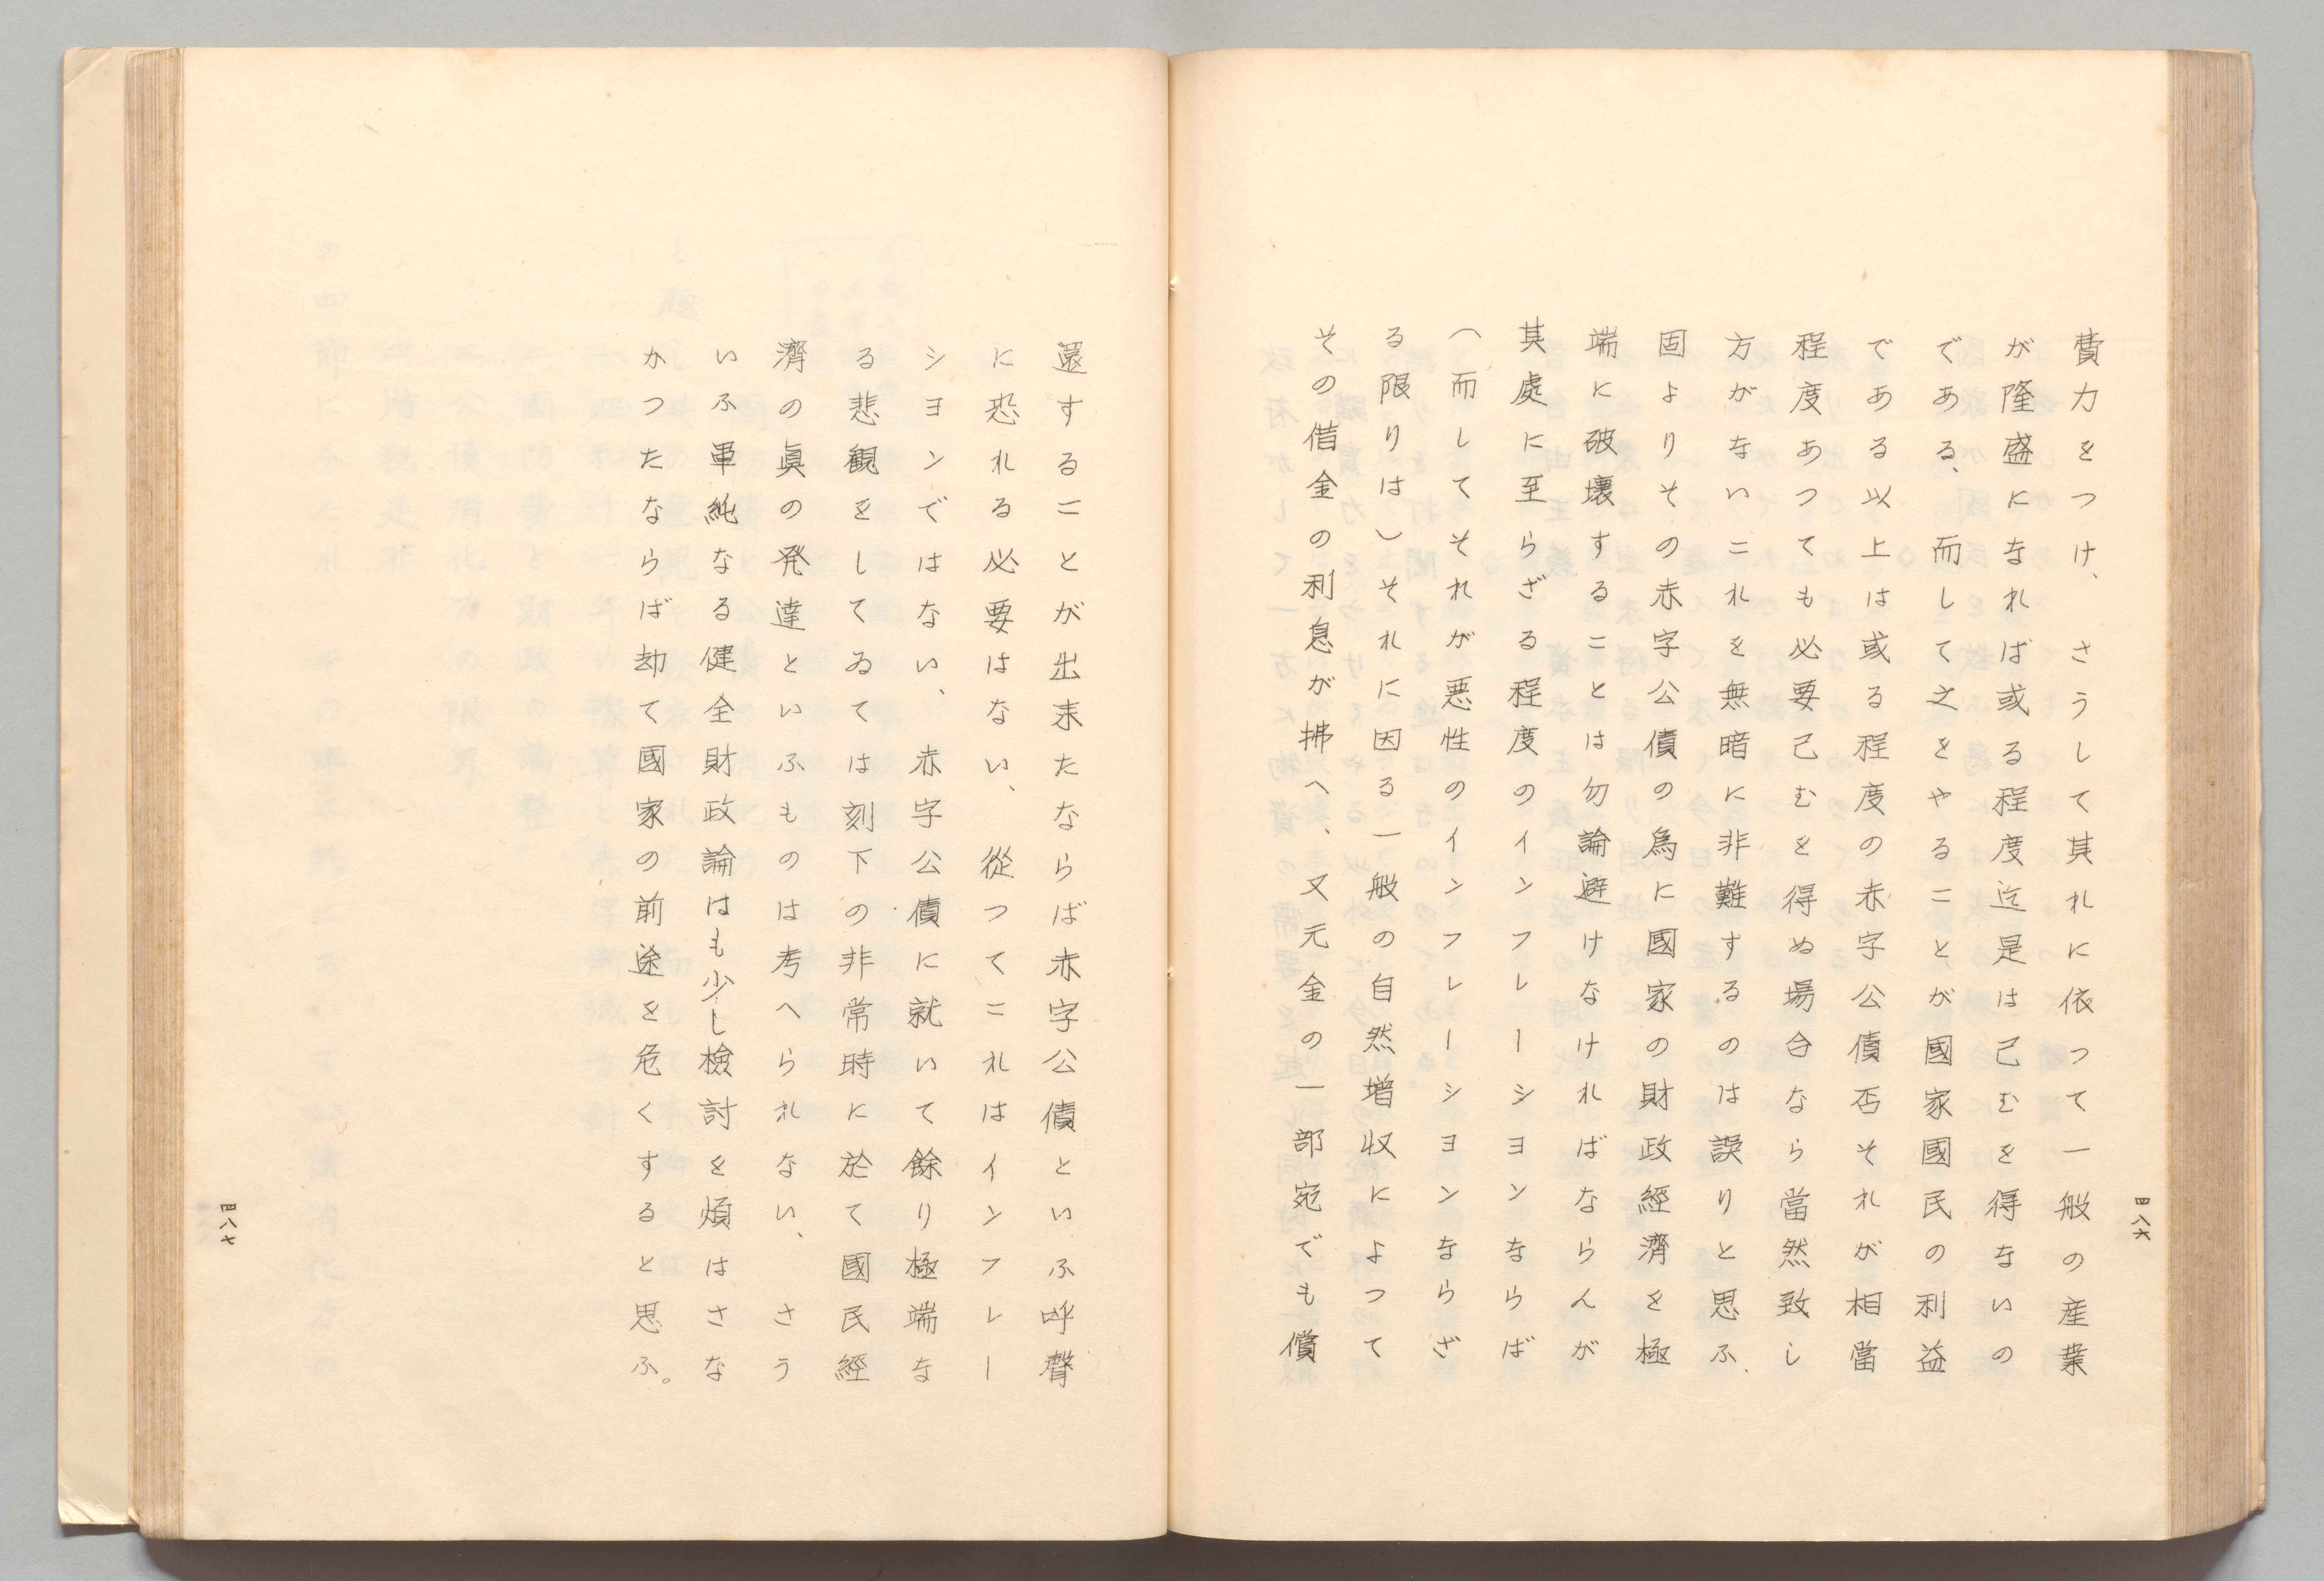 費力をつけ、さうして其れに依つて一般の産業
が隆盛になれば或る程度迄是は己むを得ないの
である、而して之をやることが國家國民の利益
である以上は或る程度の赤字公債否それが相當
程度あつても必要己むを得ぬ場合なら當然致し
方がないこれを無暗に非難するのは誤りと思ふ、
固よりその赤字公債の為に國家の財政經濟を極
端に破壞することは勿論避けなければならんが
其處に至らざる程度のインフレーシヨンならば
(而してそれが悪性のインフレーシヨンならざ
る限りは)それに因る一般の自然増収によつて
その借金の利息が拂へ、又元金の一部宛でも償
四八六
還することが出来たならば赤字公債といふ呼聲
に恐れる必要はない、従つてこれはインフレー
シヨンではない、赤字公債に就いて餘り極端な
る悲観をしてゐては刻下の非常時に於て國民經
濟の眞の発達といふものは考へられない、さう
いふ單純なる健全財政論はも少し檢討を煩はさな
かつたならば却て國家の前途を危くすると思ふ。
四八七